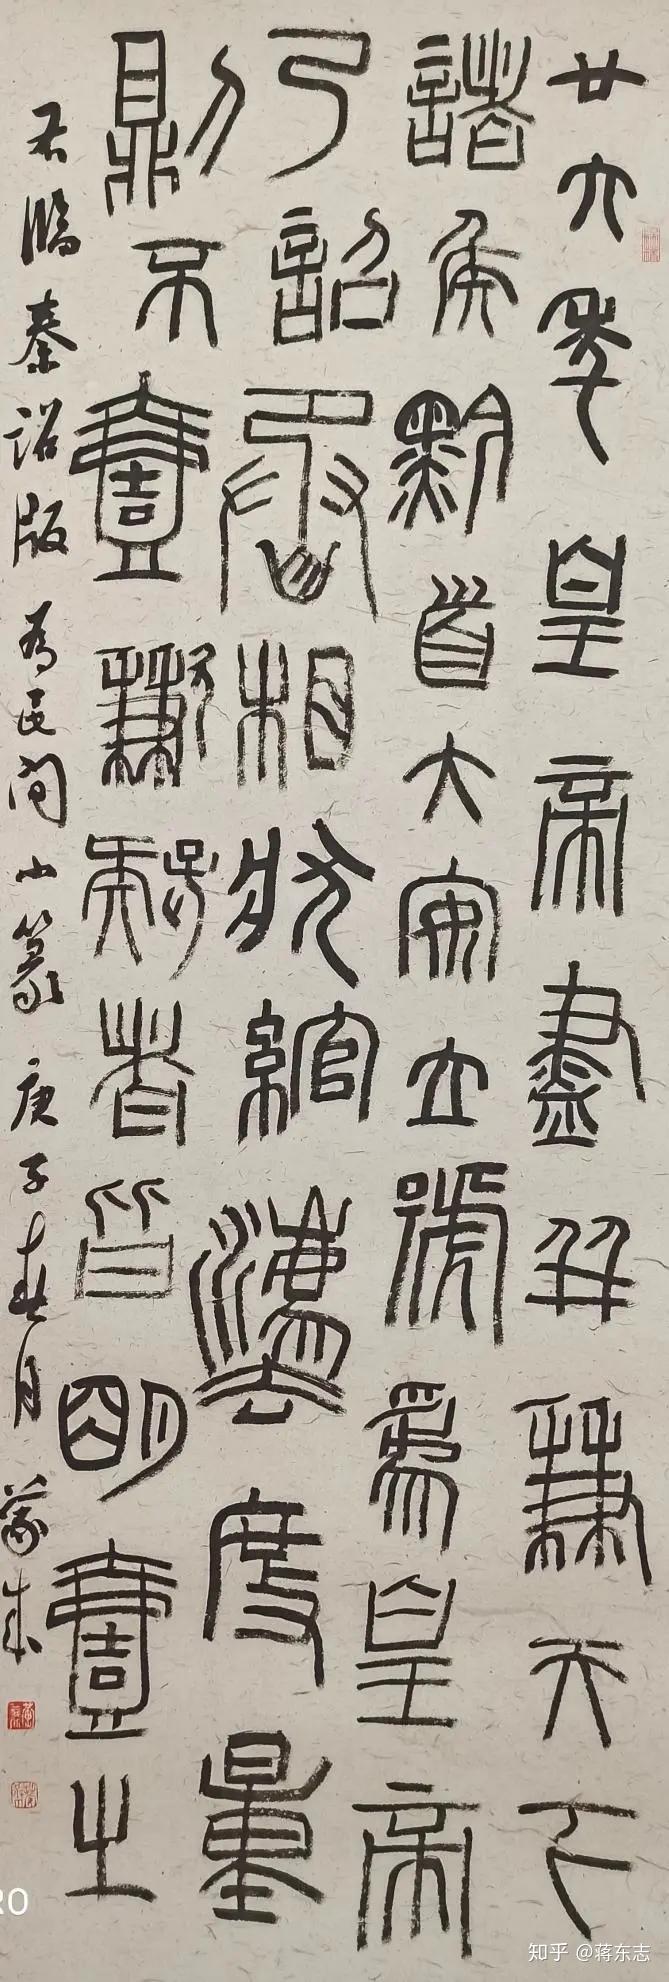 廿六年皇帝盡并兼天下
諸矦黔首大安立號為皇帝
乃詔丞相狀綰灋度量
則不壹歉疑者皆明壹之
右臨秦詔版為民間小篆庚子春月
知乎 @蒋东志